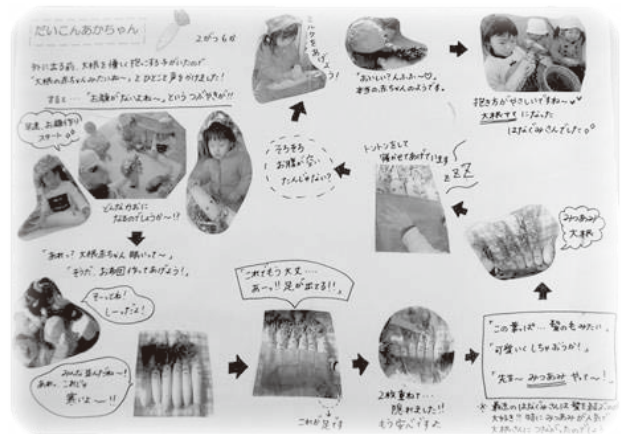 だいこんあかちゃん
2がつ6か
外に出る前、大根を優しく抱っこする子がいたので
「大根の赤ちゃんみたいね〜」とひとこと声をかけました!
すると…「お顔がないよね〜」というつぶやきが!!
早速、お顔作り
スタート
どんなかおに
なるのでしょうか〜!?
「あれっ?大根赤ちゃん眠いって〜」
「そうだ、お布団作ってあげよう!」
そーってね!
しーっだよ!
みんな並んだね〜!
あれ、これじゃ
寒いよ〜!!
「これでもう大丈…
あーっ!!足が出てる!!」
これが足です
2枚重ねて…
隠れました!!
もう安心です
「この葉っぱ…髪の毛みたい」
「可愛くしちゃおうか!」
「先生〜みつあみやって〜!」
※最近のはなぐみさんは髪を
大好き!!特にみつあみが人気で
大根さんに
みつあみ
大根
トントンをして
寝かせてあげています
zZZ
そろそろ
お腹が空い
たんじゃない?
ミルクをあげよう!
「おいしい?んふふ〜♡」
本当の赤ちゃんのようです。
抱き方がやさしいですね〜
大根ママになった
はなぐみさんでした